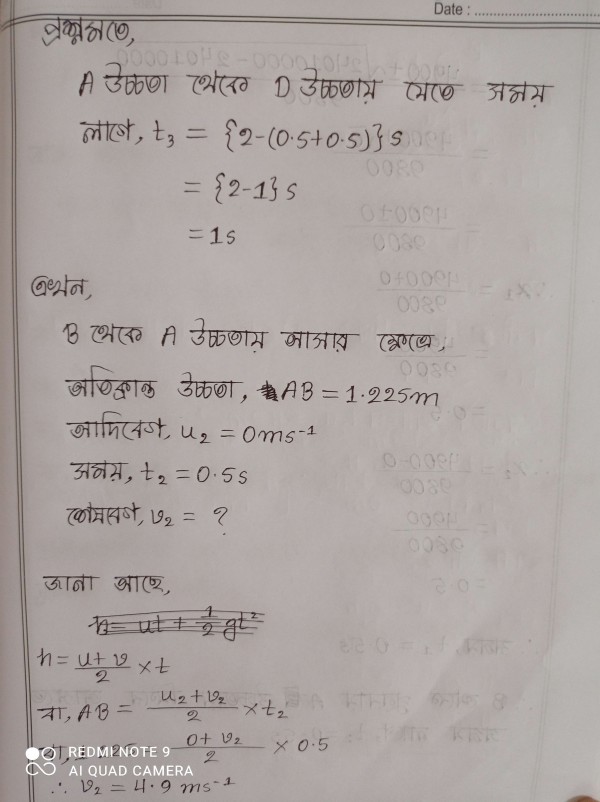 Date :
প্রশ্নমতে,
A উচ্চতা থেকে D উচ্চতায় যেতে সময়
লাগে, t₃ = {2-(0.5+0.5)} s
= {2-1} s
= 1s
এখন,
B থেকে A উচ্চতায় আসার ক্ষেত্রে,
অতিক্রান্ত উচ্চতা, AB = 1.225m
আদিবেগ, u₂ = 0ms⁻¹
সময়, t₂ = 0.5s
শেষবেগ, v₂ = ?
জানা আছে,
h = ut + 1/2 gt²
h = (u+v)/2 × t
বা, AB = (u₂+v₂)/2 × t₂
(0+v₂)/2 × 0.5
∴ v₂ = 4.9 ms⁻¹
REDMI NOTE 9
AI QUAD CAMERA